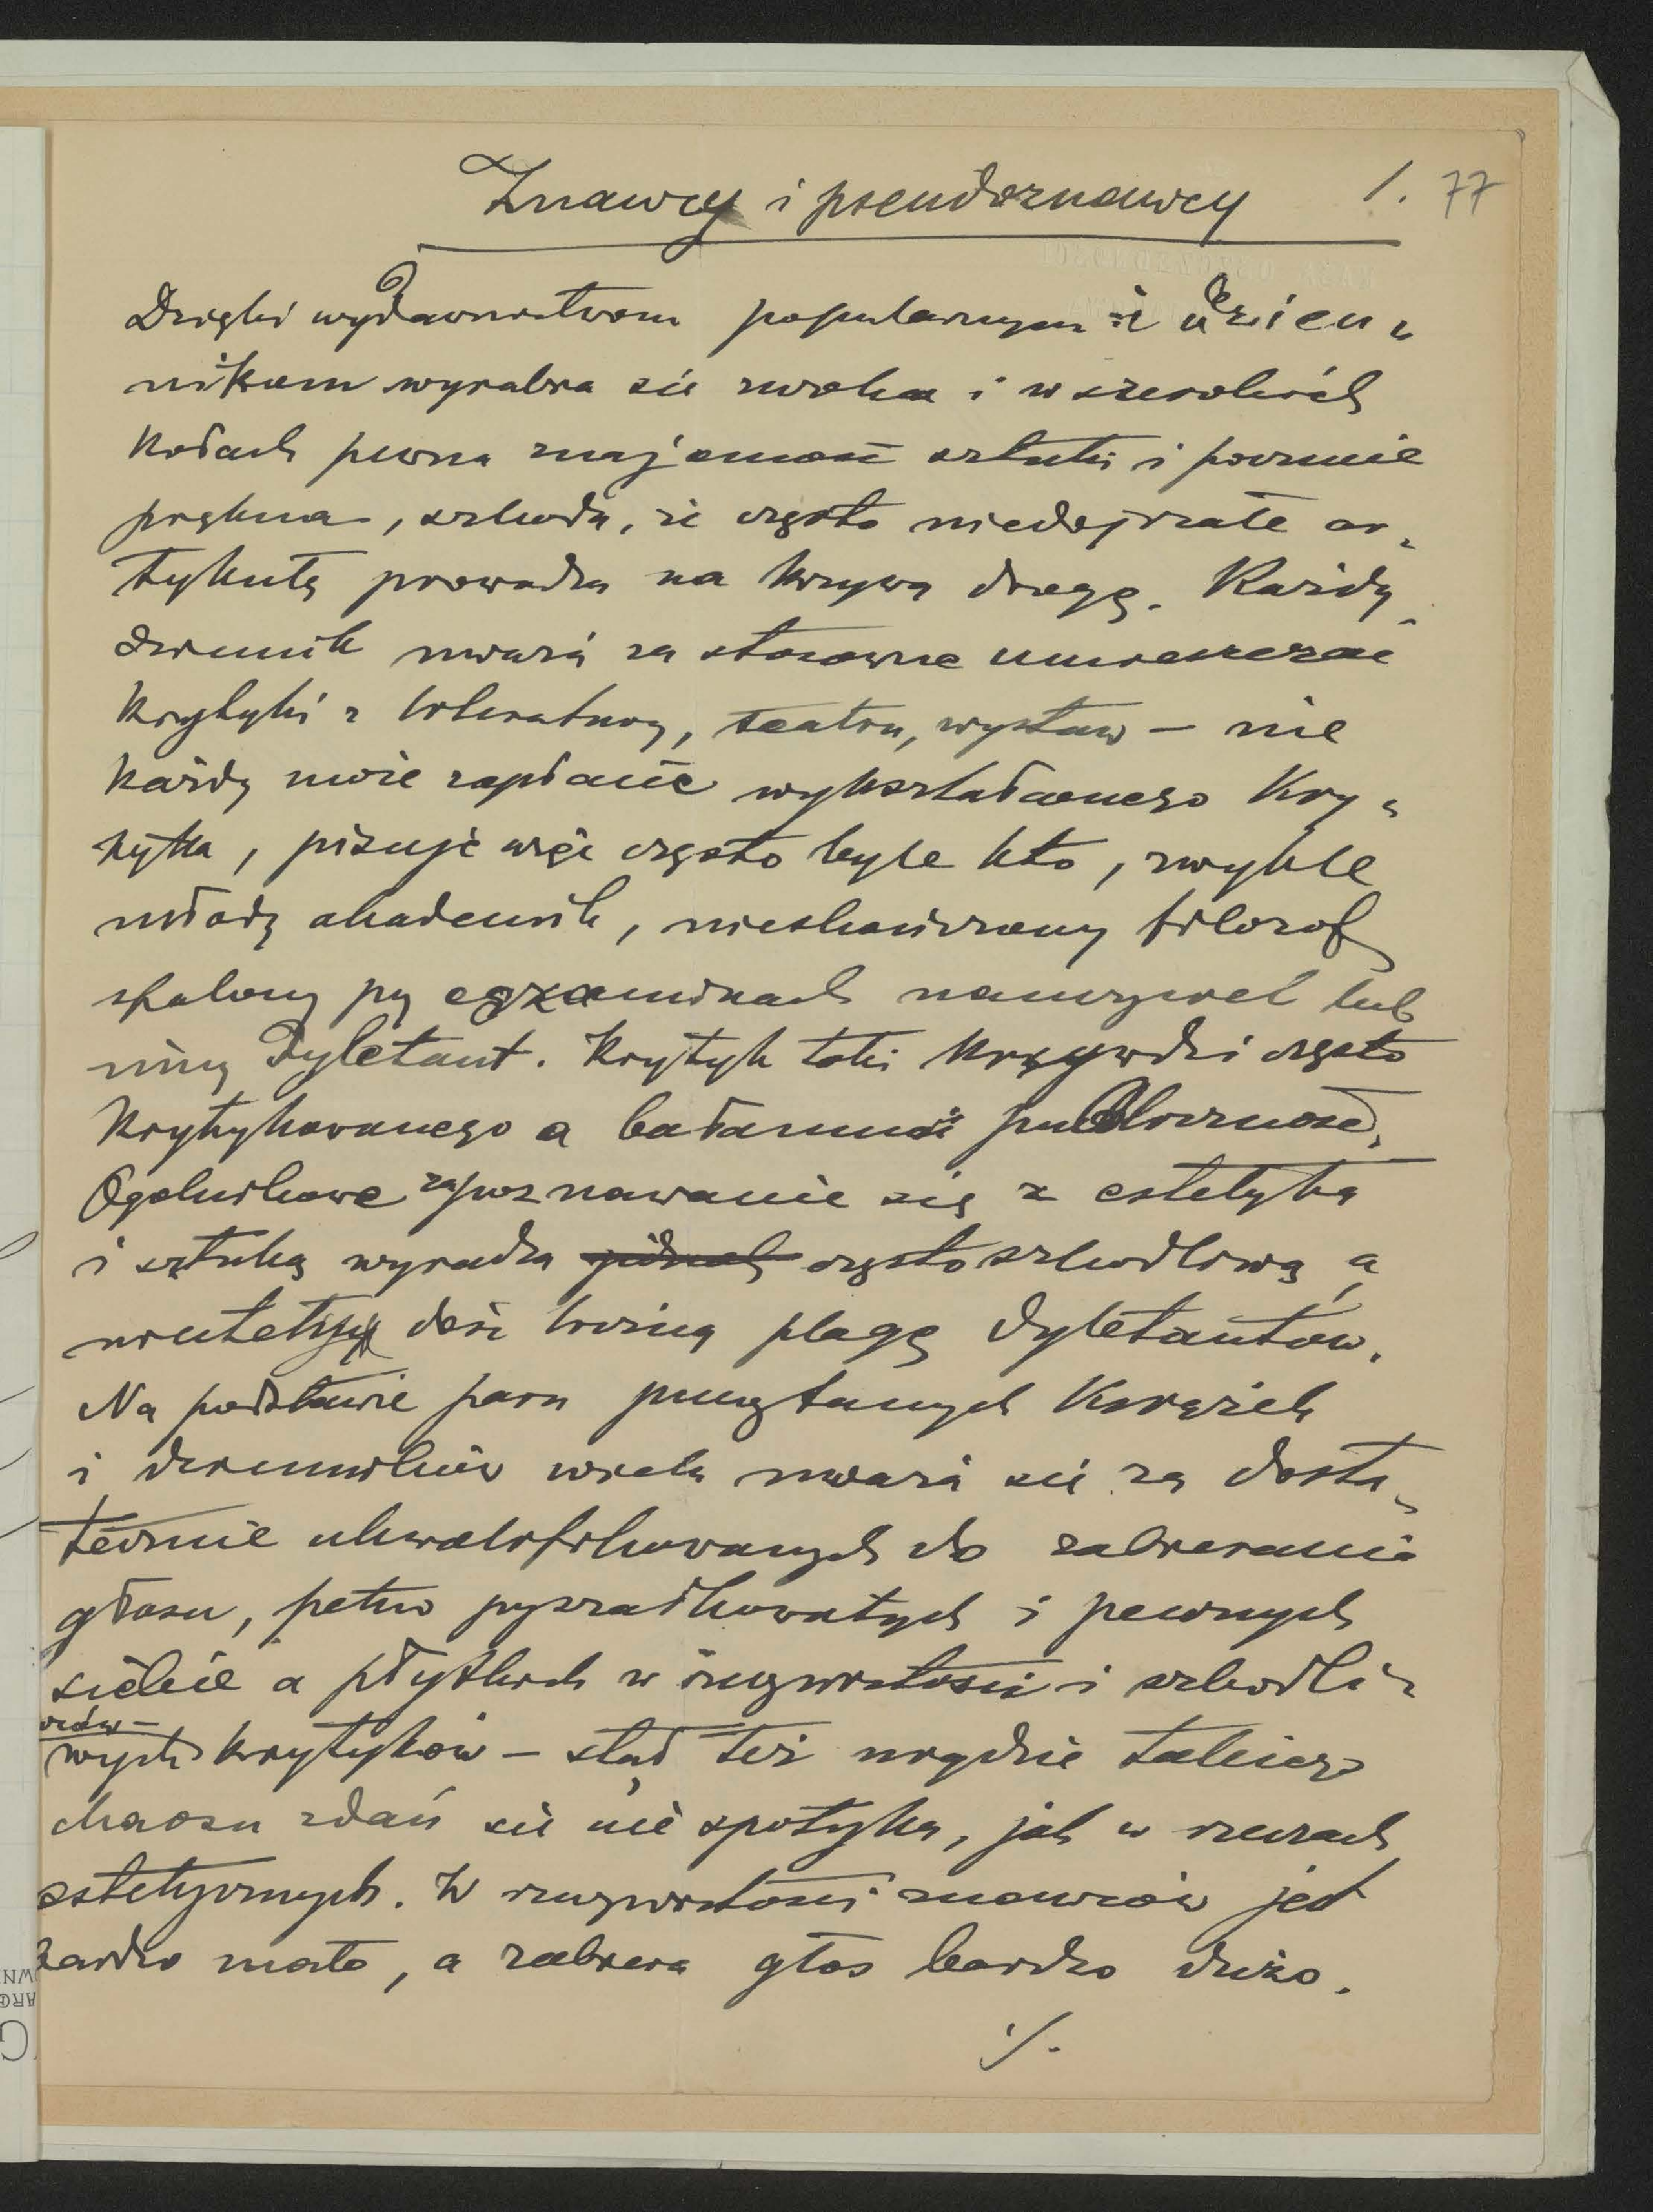 Znawcy i pseudoznawcy 1. 77
Dzięki wydawnictwom popularnym i dzien-
nikom wyrabia się zwolna i w szerokich
kołach pewna znajomość sztuki i pozornie
piękna, szkoda, że często niedojrzałe ar-
tykuły prowadzą na krzywą drogę. Każdy
dziennik uważa za stosowne umieszczać
krytyki z literatury, teatru, wystaw – nie
każdy może zapłacić wykształconego kry-
tyka, pisuje więc często byle kto, zwykle
młody akademik, nieskończony filozof
spalony przy egzaminach nauczyciel lub
inny dyletant. Krytyk taki krzywdzi często
krytykowanego a bałamuci publiczność.
Ogólnikowe zapoznawanie się z estetyką
i sztuką wyradza często szkodliwą a
niestety dość liczną plagę dyletantów.
Na podstawie paru przeczytanych książek
i dzienników wielu uważa się za dosta-
tecznie ukwalifikowanych do zabierania
głosu, pełno pyszałkowatych i pewnych
siebie a płytkich w rzeczywistości i szkodli-
wych krytyków – stąd też nigdzie takiego
chaosu zdań się nie spotyka, jak w rzeczach
estetycznych. W rzeczywistości znawców jest
bardzo mało, a zabiera głos bardzo dużo.
./.